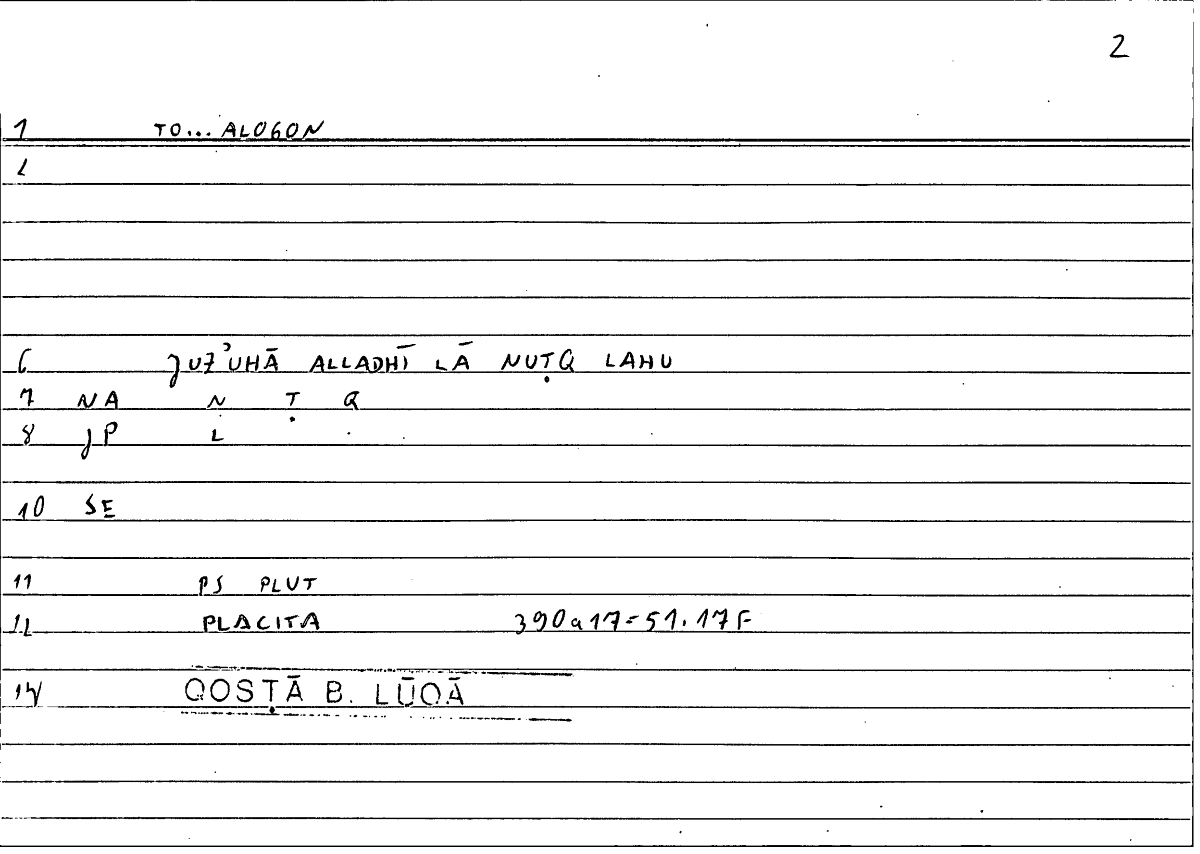 2
1 TO... ALOGON
2
6 JUZʾUHĀ ALLADHĪ LĀ NUṬQ LAHU
7 NA N Ṭ Q
8 JP L
10 SE
11 PS PLUT
12 PLACITA 390a17=51.17F
14 QOSṬĀ B. LŪQĀ